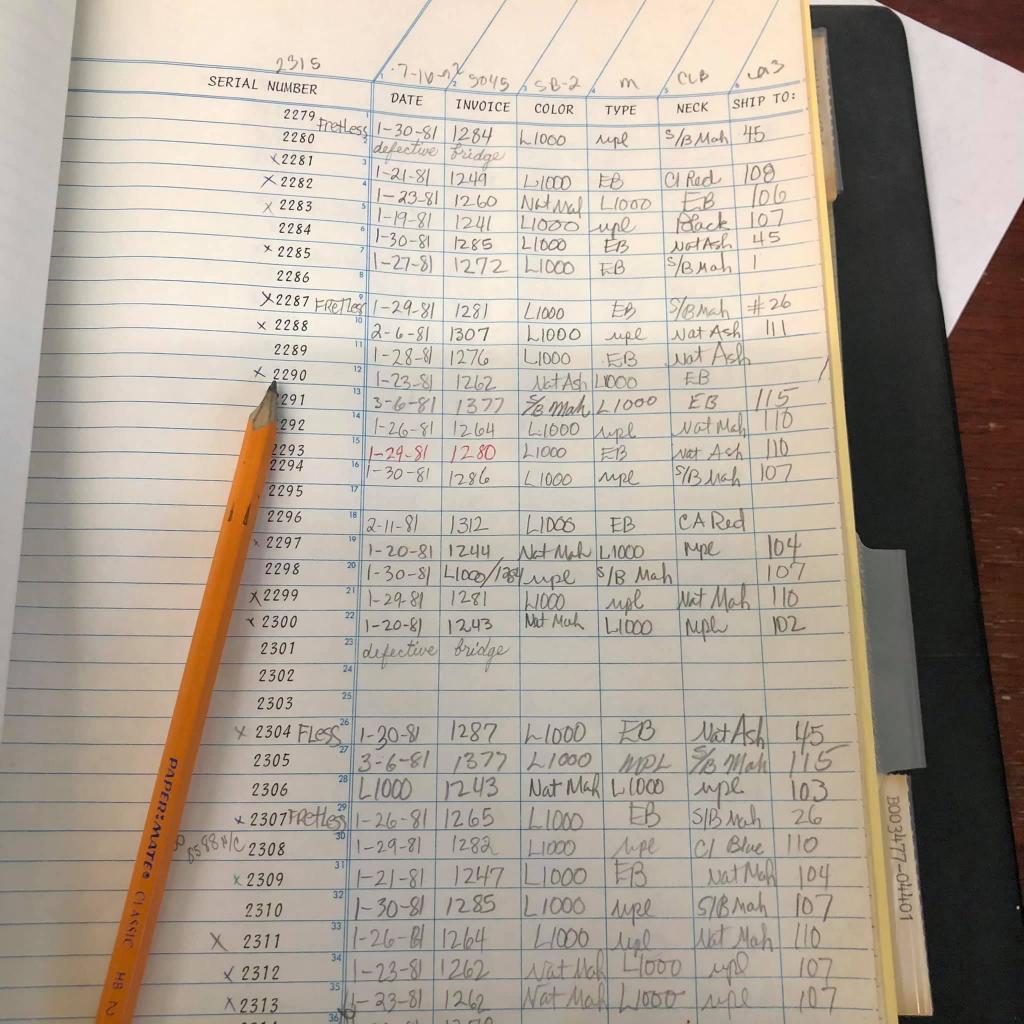 2315 7-16-92 3045 SB-2 m CLB
SERIAL NUMBER DATE INVOICE COLOR TYPE NECK SHIP TO:
2279 1
Fretless 1-30-81 1284 L1000 mpl S/B Mah 45
2280 2 defective bridge
x2281 3 1-21-81 1249 L1000 EB Cl Red 108
x2282 4 1-23-81 1260 Nat Mah L1000 EB 106
x2283 5 1-19-81 1241 L1000 mpl Black 107
2284 6 1-30-81 1285 L1000 EB Nat Ash 45
x2285 7 1-27-81 1272 L1000 EB S/B Mah 1
2286 8
x2287 Fretless 9 1-29-81 1281 L1000 EB S/B Mah #26
x2288 10 2-6-81 1307 L1000 mpl Nat Ash 111
2289 11 1-28-81 1276 L1000 EB Nat Ash
x2290 12 1-23-81 1262 Nat Ash L1000 EB
2291 13 3-6-81 1377 S/B Mah L1000 EB 115
2292 14 1-26-81 1264 L1000 mpl Nat Mah 110
2293 15 1-29-81 1280 L1000 EB Nat Ash 110
2294 16 1-30-81 1286 L1000 mpl S/B Mah 107
2295 17
2296 18 2-11-81 1312 L1000 EB CA Red
x2297 19 1-20-81 1244 Nat Mah L1000 mpl 104
2298 20 1-30-81 L1000/1284 mpl S/B Mah 107
x2299 21 1-29-81 1281 L1000 mpl Nat Mah 110
x2300 22 1-20-81 1243 Nat Mah L1000 mpl 102
2301 23 defective bridge
2302 24
2303 25
x2304 FLess 26 1-30-81 1287 L1000 EB Nat Ash 45
2305 27 3-6-81 1377 L1000 MPL S/B Mah 115
2306 28 L1000 1243 Nat Mah L1000 mpl 103
x2307 Fretless 29 1-26-81 1265 L1000 EB S/B Mah 26
2308 30 1-29-81 1282 L1000 mpl Cl Blue 110
x2309 31 1-21-81 1247 L1000 EB Nat Mah 104
2310 32 1-30-81 1285 L1000 mpl S/B Mah 107
x2311 33 1-26-81 1264 L1000 mpl Nat Mah 110
x2312 34 1-23-81 1262 Nat Mah L1000 mpl 107
x2313 35 1-23-81 1262 Nat Mah L1000 mpl 107
36
PAPER:MATE® CLASSIC HB 2
B003477-04401